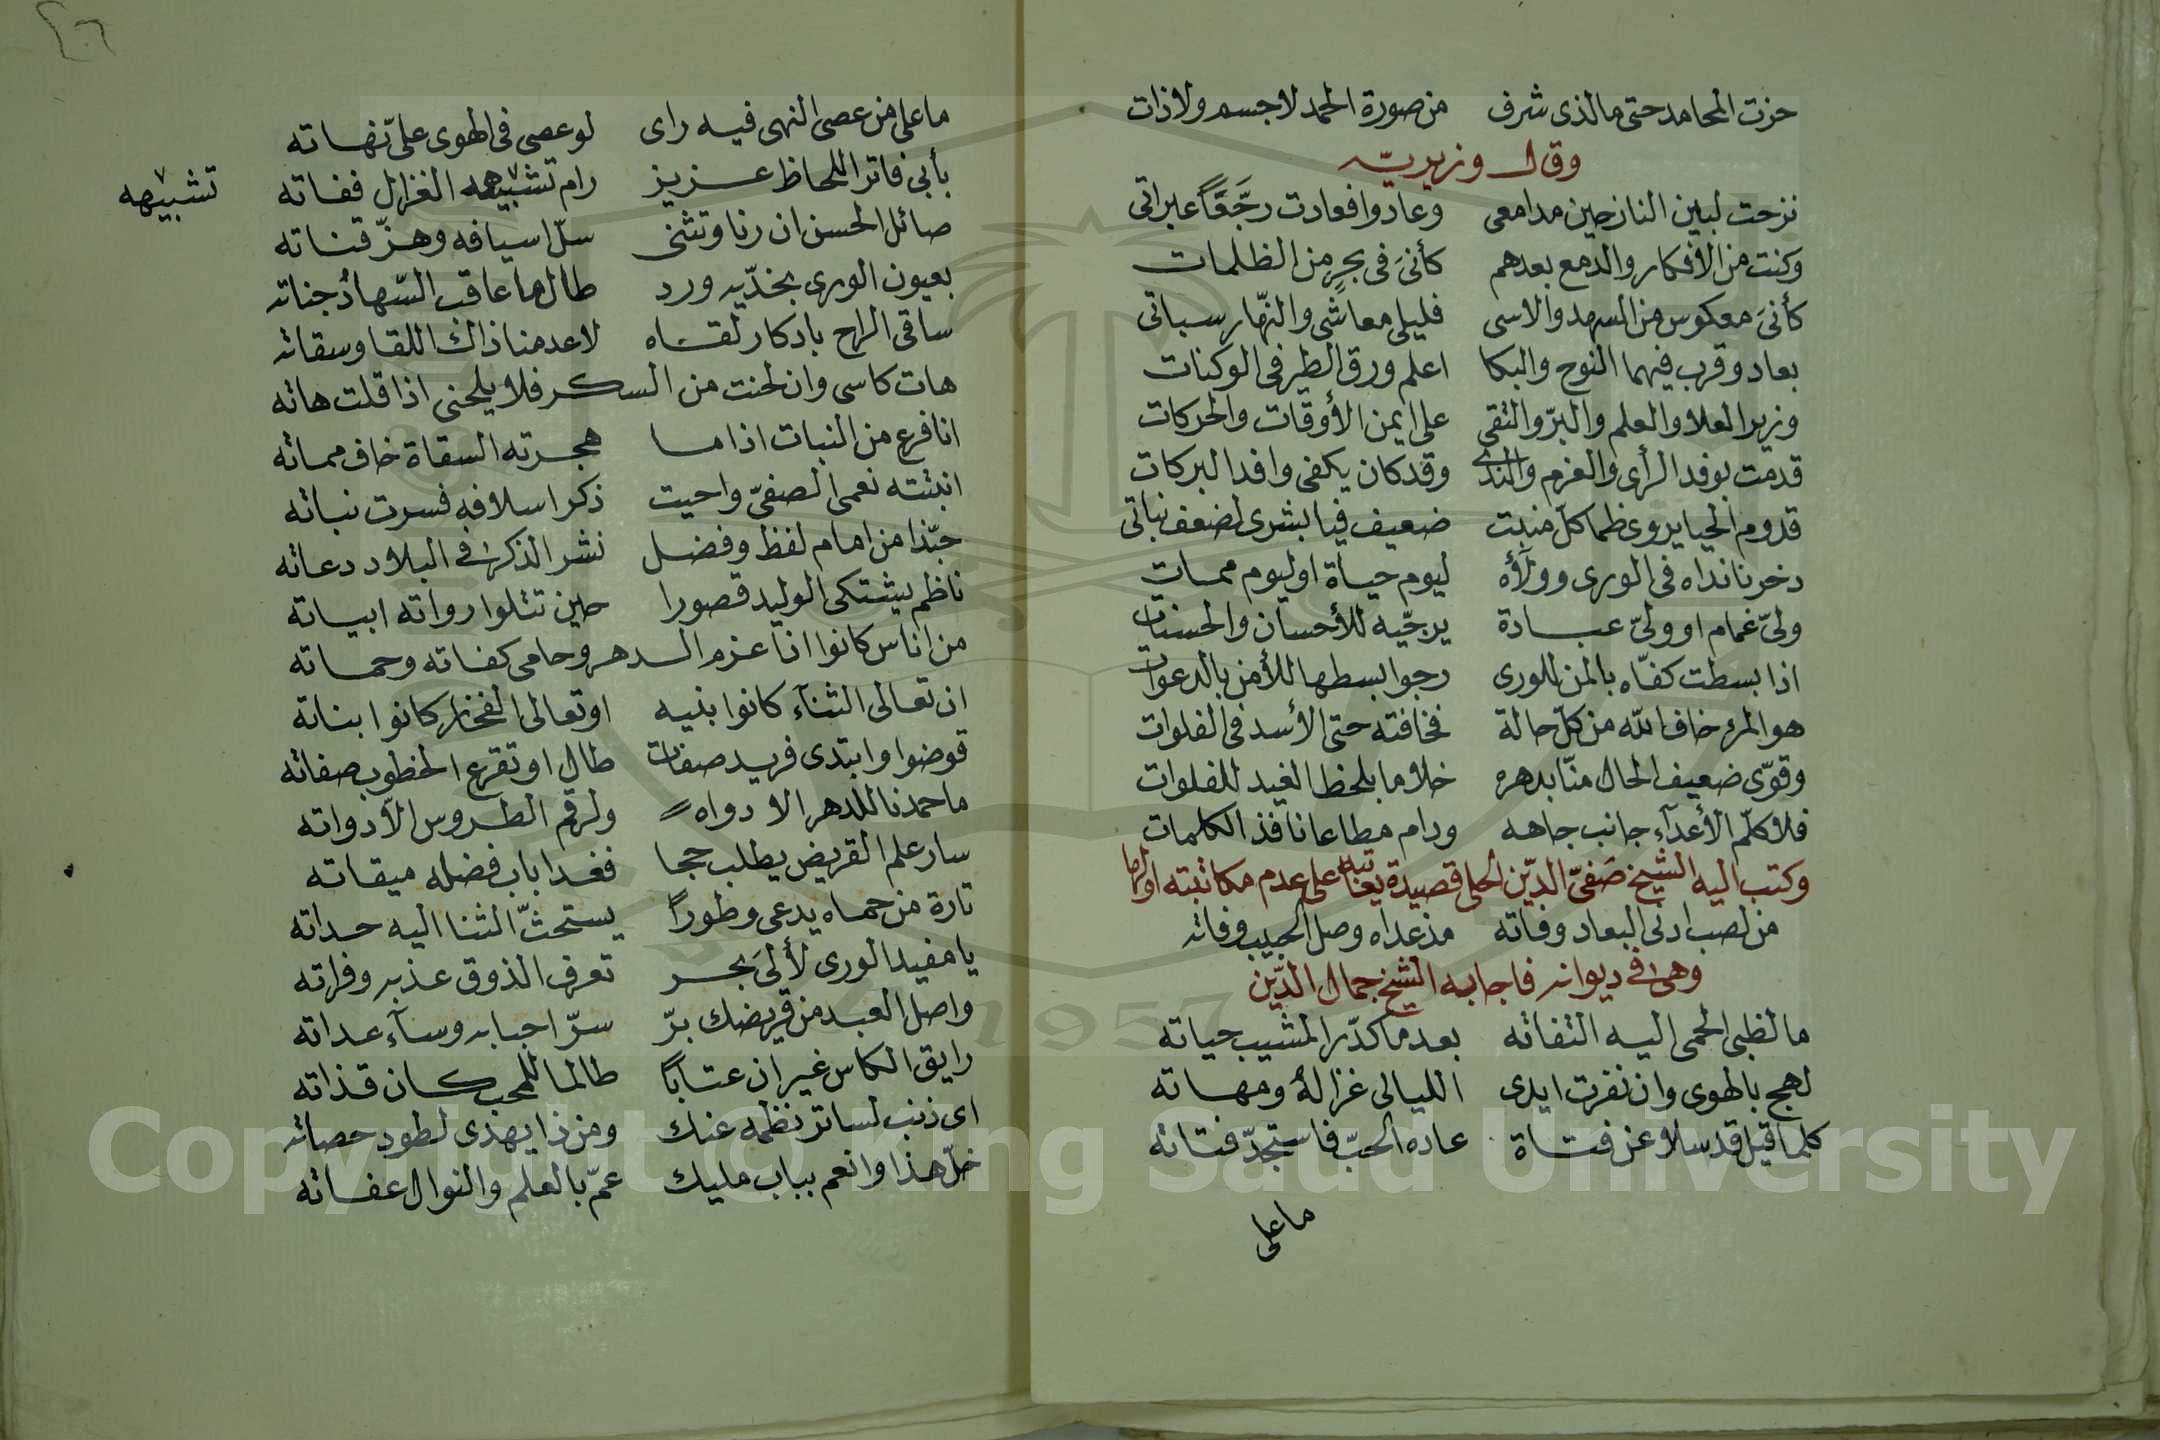 حزت المحامد حتى ما لذى شرف من صورة الحمد لا جسم ولا ذات
وقال وزيريّه
نزحت لبين النازحين مدامعى وعادوا فعادت رجّعًا عبراتى
وكنت من الأفكار والدمع بعدهم كأنى فى بحر من الظلمات
كأنى معكوس من السهد والاسى فليلى معاشى والنهار سباتى
بعاد وقرب فيهما النوح والبكا اعلم ورق الطير فى الوكنات
وزير العلا والعلم والبرّ والتقى على ايمن الأوقات والحركات
قدمت بوفد الرأى والعزم والندى وقد كان يكفى وافد البركات
قدوم الحيا يروى ظما كلّ منبت ضعيف فيا بشرى لضعف نباتى
دخرنا نداه فى الورى وولآؤه ليوم حياة او ليوم ممات
ولىّ غمام او ولىّ عبادة يرجّيه للأحسان والحسنات
اذا بسطت كفّاه بالمن للورى رجوا بسطها للأمن بالدعوات
هو المرء خاف الله من كلّ حالة فخافته حتى الأسد فى الفلوات
وقوّى ضعيف الحال منّا بدهره خلا ما بلحظ الغيد للفلوات
فلا كلّم الأعدآء جانب جاهه ودام مطاعا نافذ الكلمات
وكتب اليه الشيخ صفىّ الدّين الحلى قصيدة يعاتبه على عدم مكاتبته اولها
من لصب ادنى البعاد وفاته مذ عداه وصل الحبيب وفاته
وهى فى ديوانه فاجابه الشيخ جمال الدّين
ما لظبى الحمى اليه التفاته بعد ما كدّر المشيب حياته
لهج بالهوى وان نفرت ايدى الليالى غزاله ومهاته
كلما قيل قد سلا عن فتاة عاده الحبّ فاستجدّ فتاته
ما على
٢٦
ما على من عصى النهى فيه راى لو عصى فى الهوى علىّ نهاته
بأبى فاتر اللحاظ عزيز رام تشبيهه الغزال ففاته
تشبيهه
صائل الحسن ان رنا وتثنى سلّ اسيافه وهزّ قناته
بعيون الورى بخدّيه ورد طال ما عاقب السّهاد جناته
ساقى الراح بادكار لقاه لا عدمنا ذاك اللقا وسقاته
هات كاسى وان لحنت من السكر فلا يلحنى اذا قلت هاته
انا فرع من النبات اذا ما هجرته السقاة خاف مماته
انبتته نعمى الصفىّ واحيت ذكر اسلافه فسرت نباته
حبّذا من امام لفظ وفضل نشر الذكر فى البلاد دعاته
ناظم يشتكى الوليد قصورا حين تتلوا رواته ابياته
من اناس كانوا انا عزم الدهر وحامى كفاته وحماته
ان تعالى الثنآء كانوا بنيه او تعالى الفخار كانوا بناته
قوضوا وابتدى فريد صفات طال او تقرع الخطوب صفاته
ما حمدنا للدهر الا دواه ولرقم الطروس الا دواته
سار علم القريض يطلب حجا فغدا باب فضله ميقاته
تارة من حماه يدعى وطورًا يستحثّ الثنا اليه حداته
يا مفيد الورى لألى بحر تعرف الذوق عذبه وفراته
واصل العبد من قريضك برّ سرّ احبابه وسآء عداته
رايق الكاس غير ان عتابًا طالما للمحب كان قذاته
اى ذنب لساتر نظمه عنك ومن ذا يهدى لطود حصاته
خلّ هذا وانعم بباب مليك عمّ بالعلم والنوال عفاته
Copyright © King Saud University
1957